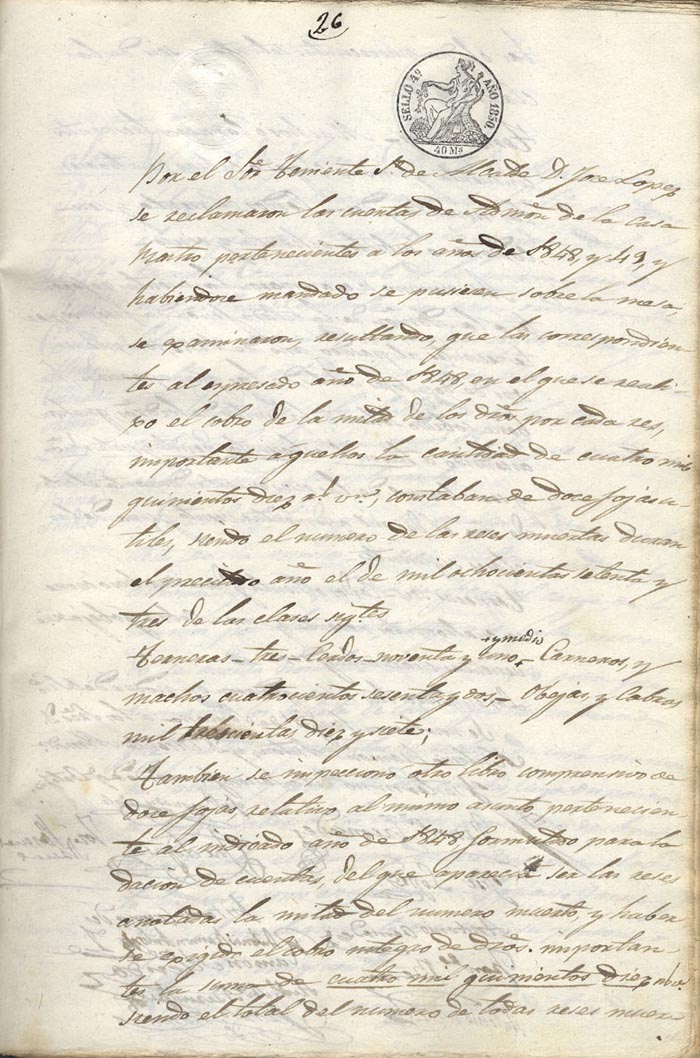 26
SELLO 4º AÑO 1850.
40 Ms
Por el Sor Teniente de Alcalde D. Jose Lopez
se reclamaron las cuentas de Admón de la casa
Mastro pertenecientes a los años de 1848, y 49, y
habiendose mandado se pusiesen sobre la mesa,
se examinaron, resultando, que las correspondien-
tes al espresado año de 1848, en el que se reali-
zo el cobro de la mitad de los dros por cada res,
importante aquellos la cantidad de cuatro mil
quinientos diez rs vn, constaban de doce fojas u-
tiles, siendo el numero de las reses muertas duran
el precitado año el de mil ochocientas setenta y
tres de las clases sigtes
Terneras - tres - Cerdos - noventa y uno y medio - Carneros, y
machos cuatrocientos sesenta y dos - Obejas, y Cabras
mil trescientas diez y siete;
Tambien se inspecciono otro libro comprensivo de
doce fojas relativo al mismo asunto, pertenecien-
te al indicado año de 1848 formado para la
dacion de cuentas, del que aparecia ser las reses
anotadas la mitad del numero muerto, y haber
se exigido el cobro integro de dros. importan-
tes la suma de cuatro mil quinientos diez rs vn.
siendo el total del numero de todas reses muer-